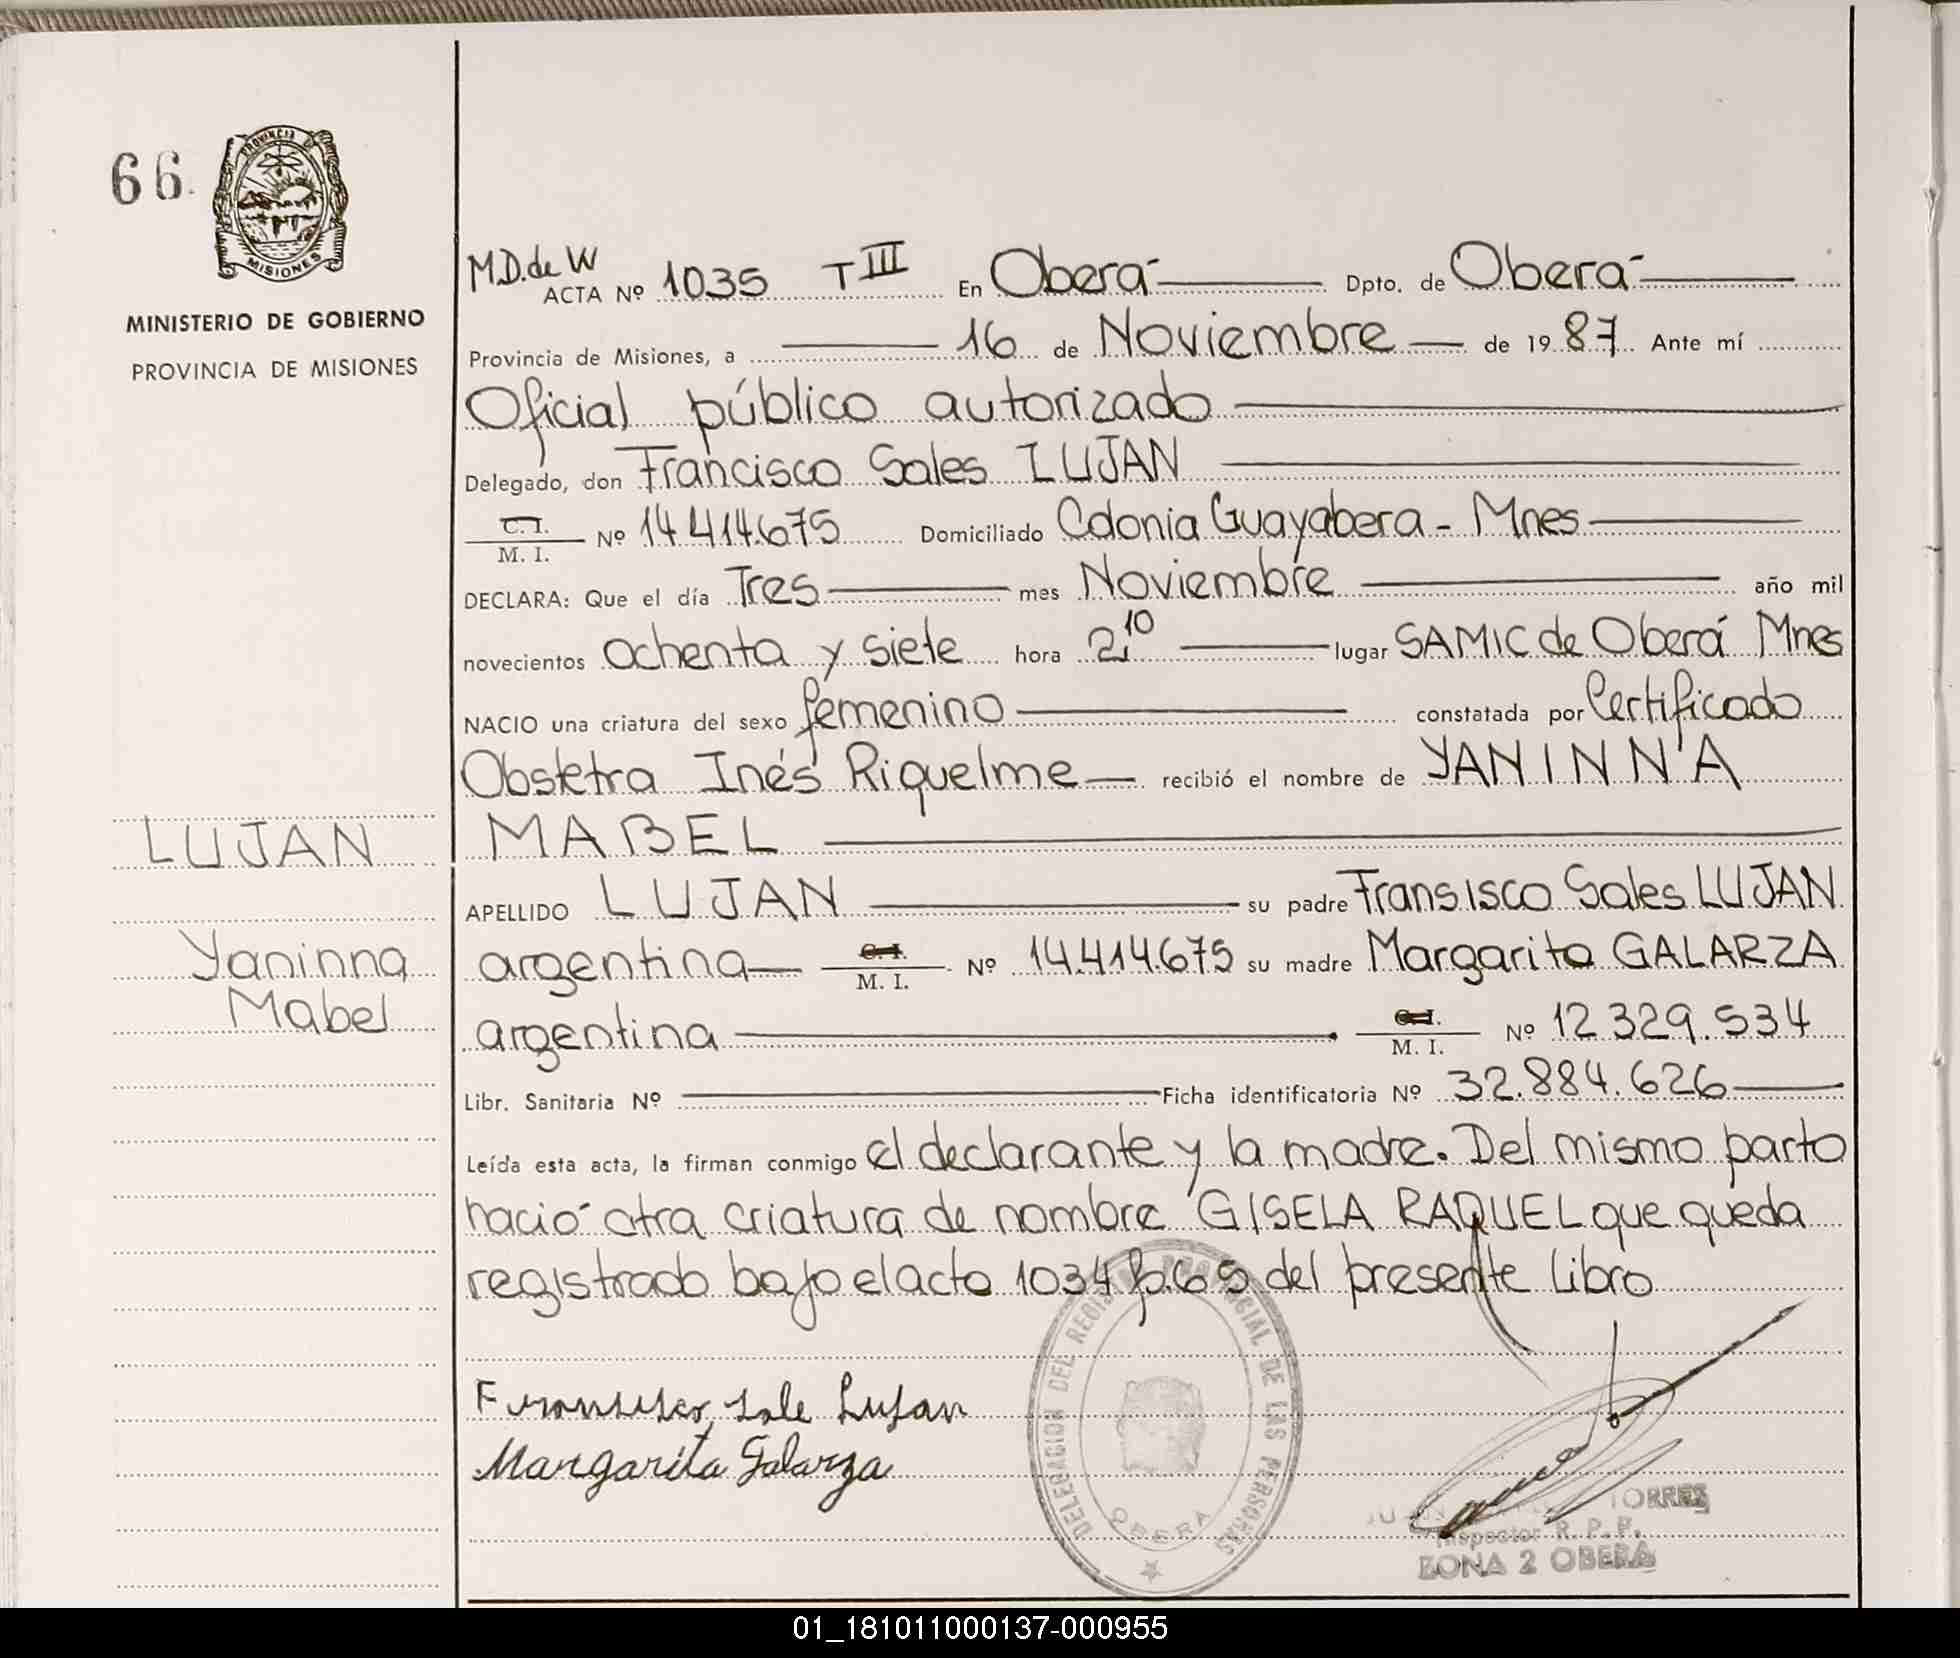 66
PROVINCIA
MISIONES
MINISTERIO DE GOBIERNO
PROVINCIA DE MISIONES
M.D. de W
ACTA Nº 1035 T III En Oberá Dpto. de Oberá
Provincia de Misiones, a 16 de Noviembre de 1987 Ante mí
Oficial público autorizado
Delegado, don Francisco Sales LUJAN
C. I.
M. I. Nº 14.414.675 Domiciliado Colonia Guayabera - Mnes
DECLARA: Que el día Tres mes Noviembre año mil
novecientos ochenta y siete hora 2,10 lugar SAMIC de Oberá Mnes
NACIO una criatura del sexo femenino constatada por Certificado
Obstetra Inés Riquelme recibió el nombre de YANINNA
MABEL
LUJAN
APELLIDO LUJAN su padre Fransisco Sales LUJAN
Yaninna
Mabel
argentina C. I. M. I. Nº 14.414.675 su madre Margarita GALARZA
argentina C. I. M. I. Nº 12.329.534
Libr. Sanitaria Nº Ficha identificatoria Nº 32.884.626
Leída esta acta, la firman conmigo el declarante y la madre. Del mismo parto
nació otra criatura de nombre GISELA RAQUEL que queda
registrado bajo el acto 1034 fo. 65 del presente libro
Margarita Galarza
DELEGACION DEL REGISTRO PROVINCIAL DE LAS PERSONAS
OBERA
TORRES
Inspector R. P. P.
ZONA 2 OBERÁ
01_181011000137-000955